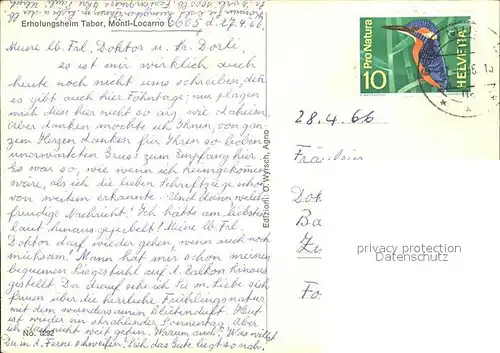 Erholungsheim Tabor, Monti-Locarno 6605 d. 27.4.66
Meine lb. Frl. Doktor u. Dorle,
es ist mir wirklich auch
heute noch nicht ums schreiben, denn
es gibt auch hier Föhntage: nur plagen
mich diese hier nicht so arg wie daheim.
Aber danken möchte ich Ihnen von gan-
zem Herzen danken für Ihren so lieben
unerwarteten Gruss zum Empfang hier.
Es war so, wie wenn ich heimgekommen
wäre, als ich die lieben Schriftzüge schon
von weitem erkannte. Und dann welch
freudige Nachricht! Ich hätte am liebsten
laut hinausgejubelt! Meine lb. Frl.
Doktor darf wieder gehen, wenn auch noch
mühsam! Mann hat mir schon meinen
bequemen Liegestuhl auf d. Balkon hinaus
gestellt. Da drauf sehe ich Sie m. Liebe sich
freuen über die herrliche Frühlingsnatur
mit dem wundersamen Blütenduft. Heut
ist wieder ein strahlender Sonnentag. Aber
ich darf nicht weit gehen. Warum auch? Was willst
Du in d. Ferne schweifen? Sieh das Gute liegt so nah.
No. 1292
Edizioni: O. Wyrsch, Agno
Pro Natura
10
HELVETIA
28.4.66
Fräulein
Dok
Ba
Zü
Fo
propriety of
Ansichtskartenversand
.com